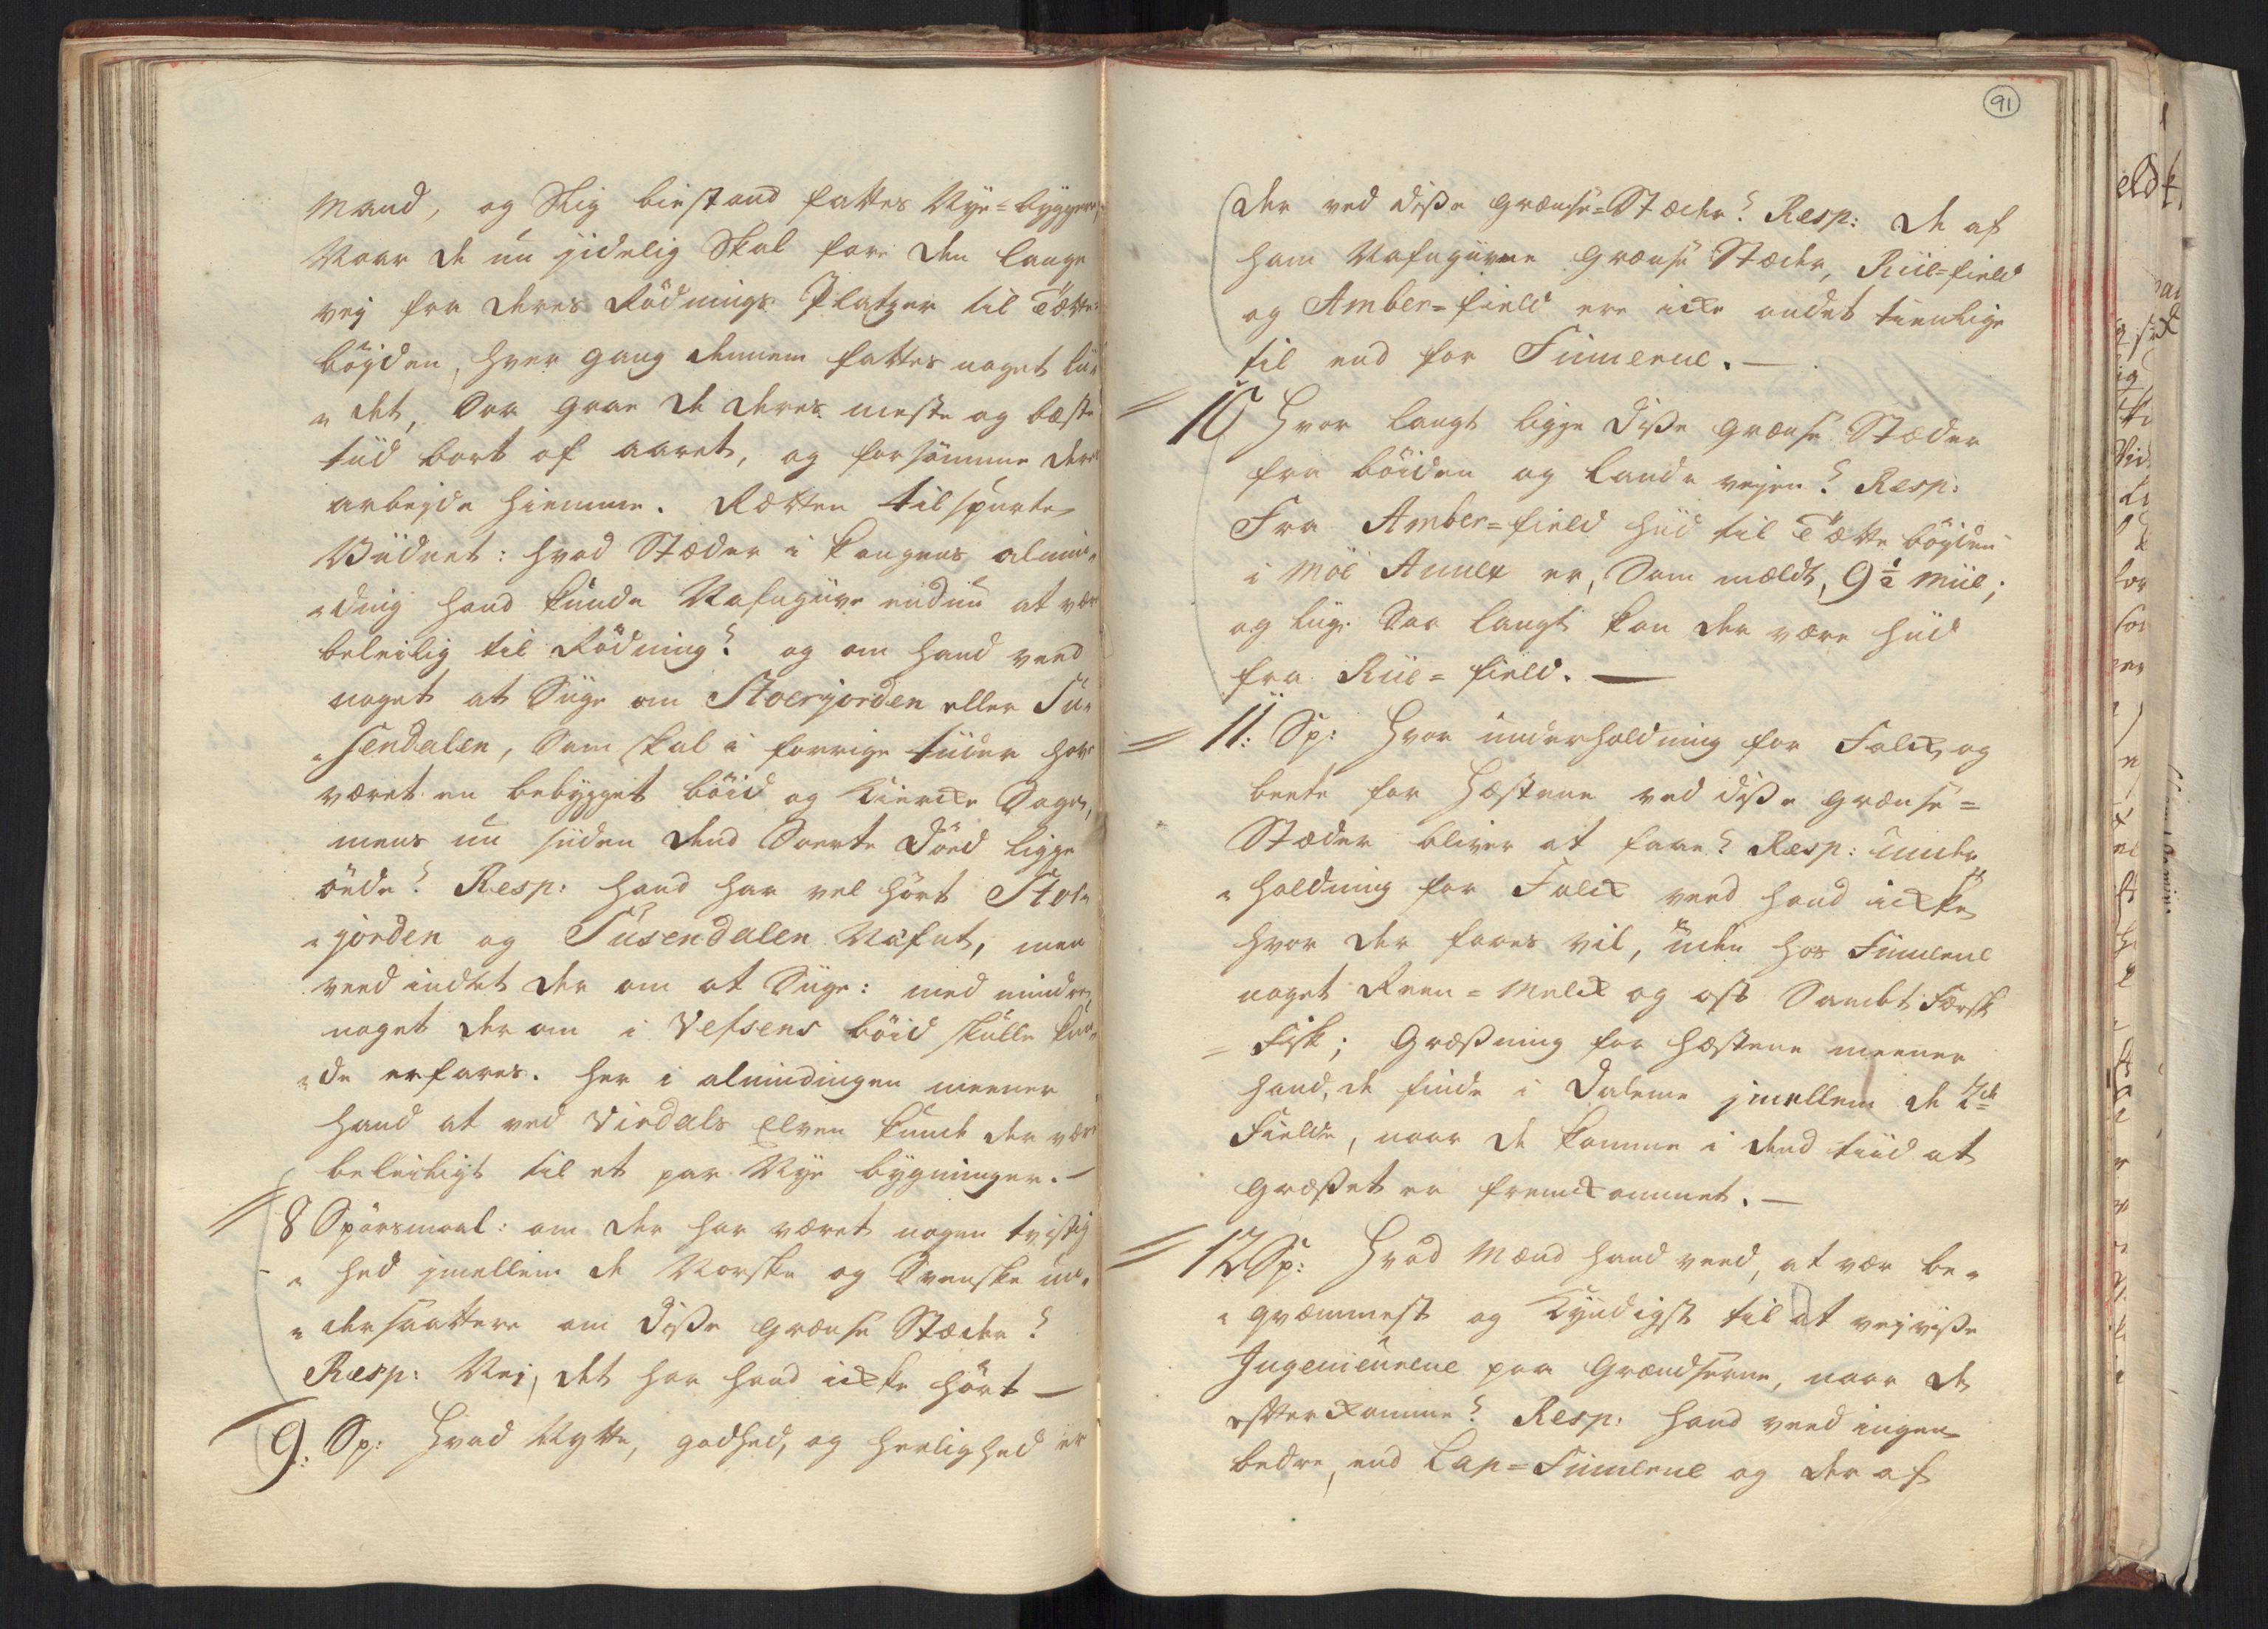 Mand, og Slig biestand fattes Nye=byggerne
Naar de nu jidelig Skal fare den lange
vej fra deres Rödnings Platzer til Tötte=
böjden, hver gang dennem fattes noget lü=
=det, Saa gaae de deres meste og bæste
tiid bort af aaret, og forsömme deres
arbejde hiemme. Rætten tilspurte
Viidnet: hvad Stæder i kongens almin=
=ding hand kunde Nafngive endnu at være
beleilig til Rödning? og om hand veed
noget at Siige om Stoerjorden eller Su=
=sendalen, Som skal i forrige tiider have
været en bebygget böid og Kiercke Sogn,
mens nu siiden dend Sorte Död ligge
öede? Resp: hand har vel hört Stor=
=jorden og Susendalen Nafnt, men
veed indtet der om at Siige: med mindre
noget der om i Vefsens böid skulle kun=
=de erfares. her i almindingen meener
hand at ved Virdals Elven kunde der være
beleiligt til et par Nye bygninger. —
8 Spörsmaal: om der har været nogen tvistig
=hed jmellem de Norske og Svenske un=
=dersaattere om disse grænse Stæder?
Resp: Nej, det har hand icke hört —
9. Sp: Hvad Nytte, godhed, og herlighed er
91
der ved disse grænse=Stæder? Resp: de af
ham Nafngivne grænse Stæder, Riil=field
og Amber=field ere icke andet tienlige
til end for Finnerne. —
10 Hvor langt ligge disse grænse Stæder
fra böiden og lande vejen? Resp:
Fra Amber=field hiid til Tötte böjden
i Moe Annex er, Som meldt, 9½ Miil;
og liige Saa langt kan der være hiid
fra Riil=field. —
11: Sp: Hvor underholdning for Folck og
beete for Hæstene ved disse grænse=
Stæder bliver at faae? Resp: under
=holdning for Folck veed hand icke
hvor der faaes vil, uden hos Finnerne
noget Reen=Melck og ost Sambt Fersk
=Fisk; Græsning for Hæstene meener
hand, de finde i Dalerne jmellem de 2de
Fielde, naar de komme i dend tiid at
græsset er fremkommet. —
12 Sp: Hvad Mænd hand veed, at vær be=
=qvæmmest og Kyndigst til at vejviise
Ingenieurerne paa Grændserne, naar de
efterkomme? Resp: hand veed ingen
bedre, end Lap=Finnerne og der af